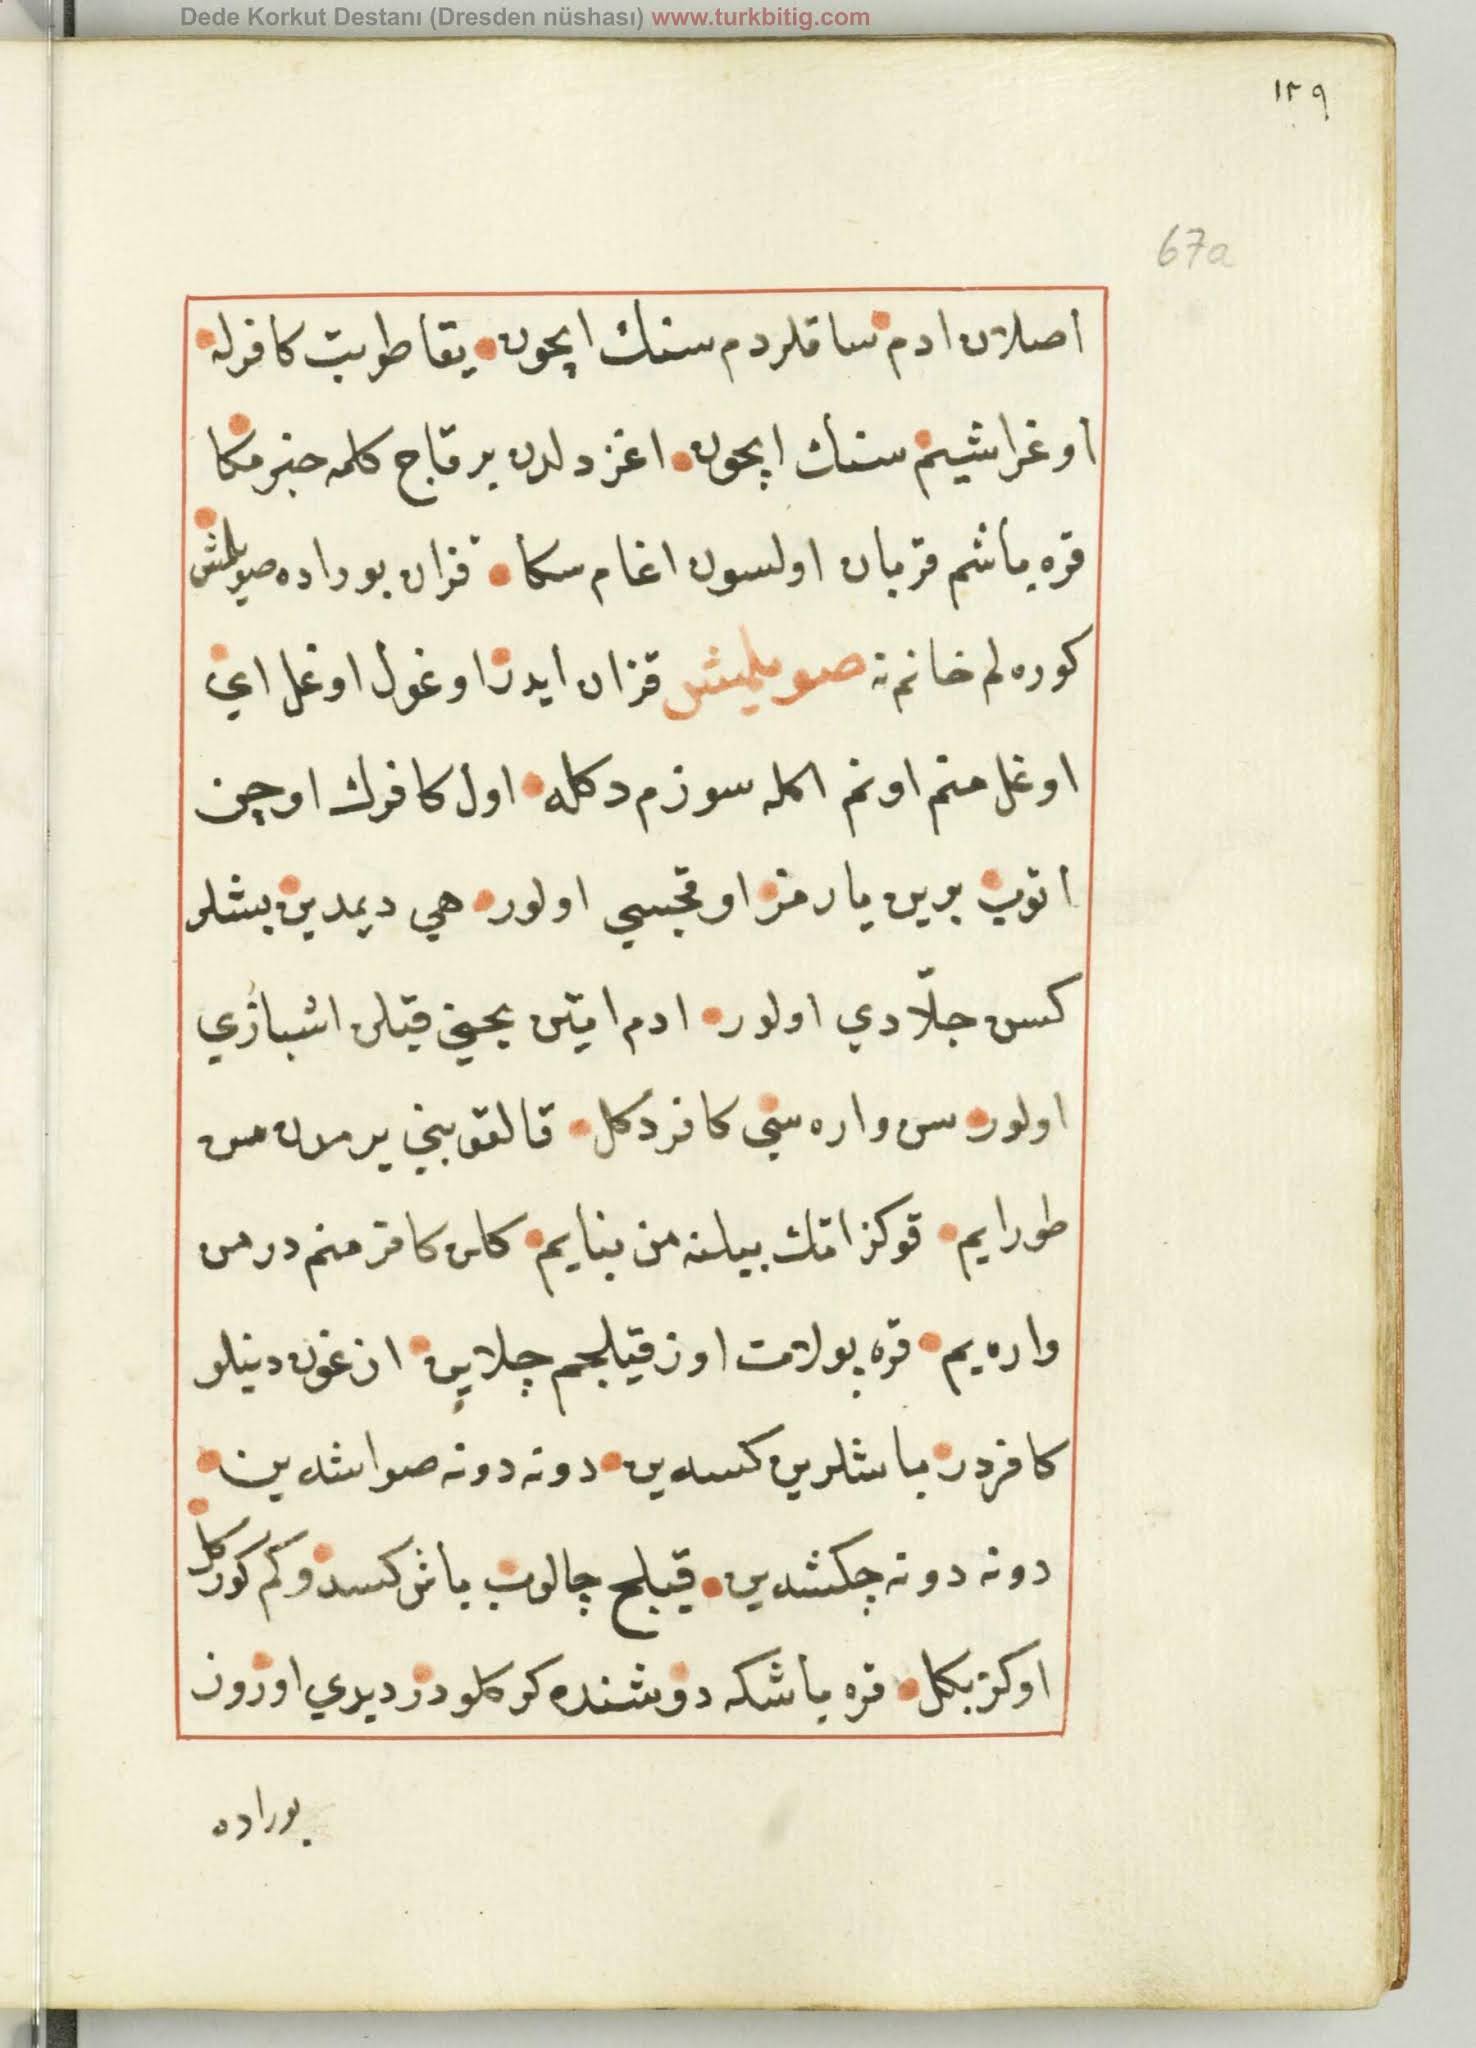 Dede Korkut Destanı (Dresden nüshası) www.turkbitig.com
١٢٩
67a
اصلان ادم ساقلردم سنك اپچون يقا طوتب كافرله
اوغراشيم سنك اپچون اغز دلدن بر قاچ كلمه خبر مكا
قره باشم قربان اولسون اغام سكا قزان بوراده صويلمش
كوره لم خانم نه صويلمش قزان ايدر اوغول اوغل اي
اوغل منم اونم اكله سوزم دكله اول كافرك اوچن
اتوب برين يارمز اوقجسي اولور هي ديمدين بشلر
كسن جلّادي اولور ادم اتين يخني قيلن اشبازي
اولور سن واره سي كافر دكل قالقوبني يرمدن من
طورايم قوكز اتك بيلنه من بنايم كلن كافر منم در من
واره يم قره پولات اوز قيلجم چلاين ازغون دينلو
كافردر باشلرين كسه ين دونه دونه صواشه ين
دونه دونه چكشه ين قيلج چالوب باش كسدوكم كوركل
اوكرنكل قره باشكه دوشنده كركلودر ديدي اوروز
بوراده